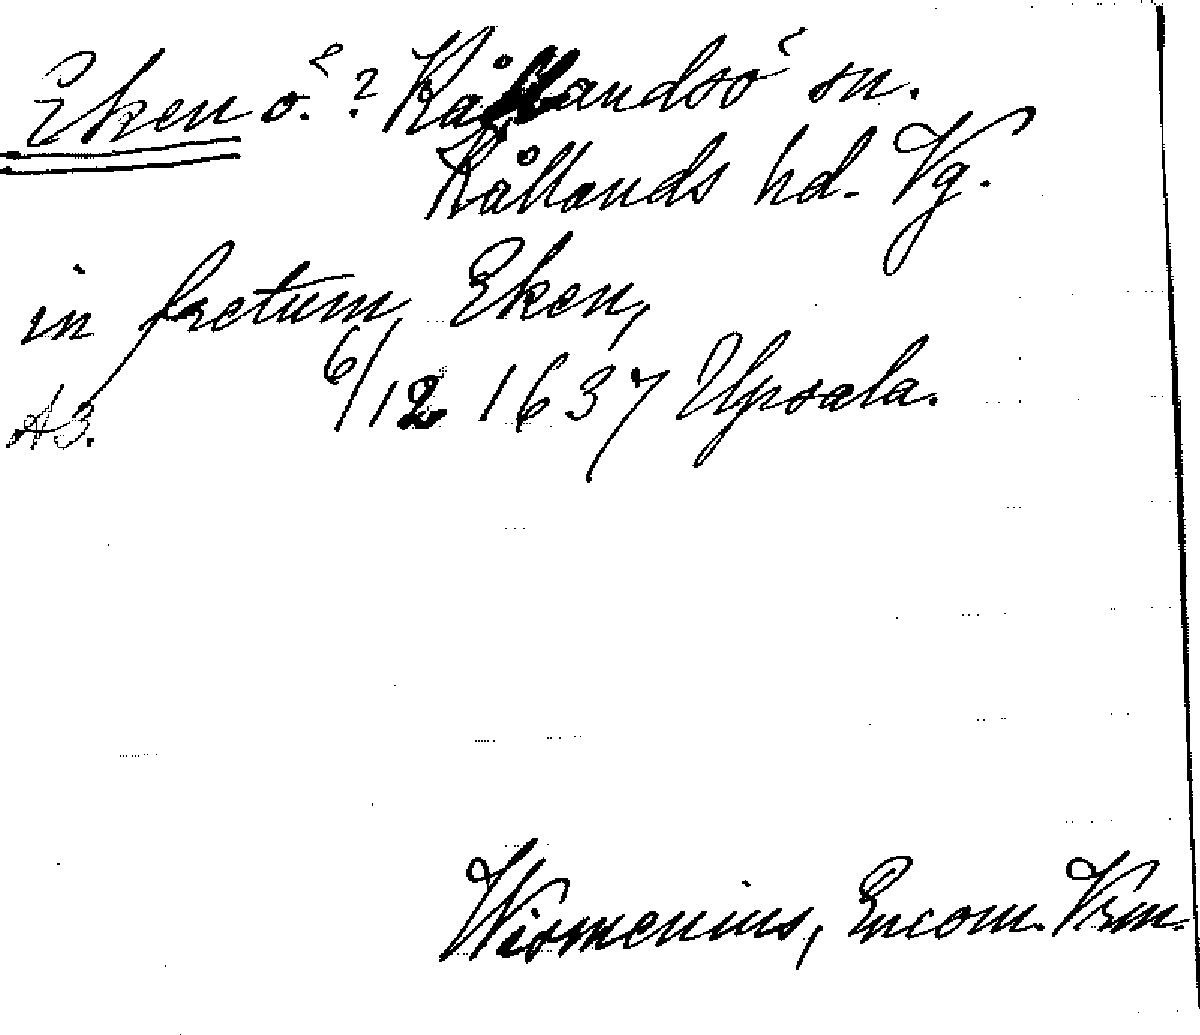 Eken ö.? Kållandsö sn.
Kållands hd. Vg.
in fretum Eken,
A3. 6/12 1637 Upsala.
Wismenius, Encom. Vrm.